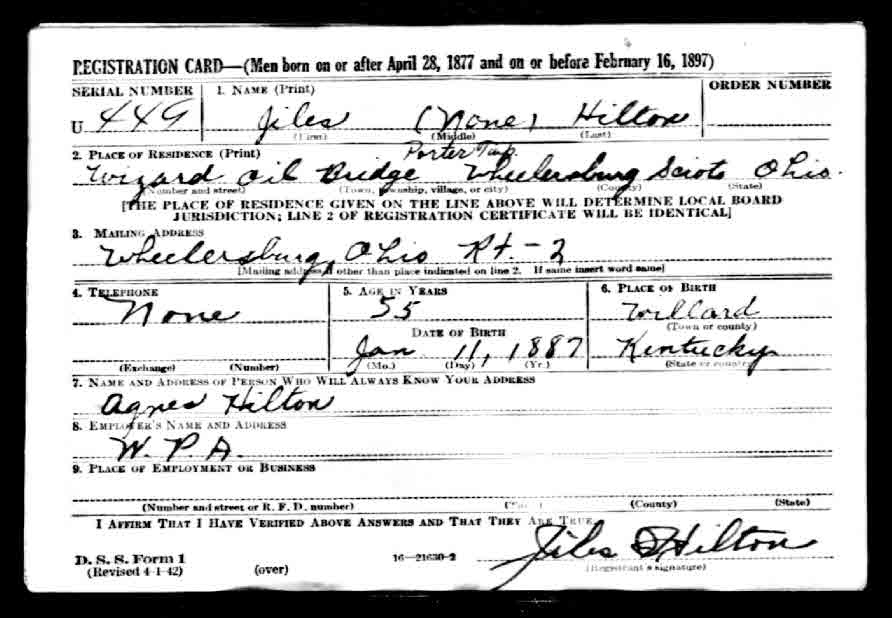 REGISTRATION CARD—(Men born on or after April 28, 1877 and on or before February 16, 1897)
SERIAL NUMBER 1. NAME (Print) ORDER NUMBER
U 449 Jiles (None) Hilton
(First) (Middle) (Last)
2. PLACE OF RESIDENCE (Print) Porter Twp.
Wizard Oil Bridge Wheelersburg Scioto Ohio.
(Number and street) (Town, township, village, or city) (County) (State)
[THE PLACE OF RESIDENCE GIVEN ON THE LINE ABOVE WILL DETERMINE LOCAL BOARD
JURISDICTION; LINE 2 OF REGISTRATION CERTIFICATE WILL BE IDENTICAL]
3. MAILING ADDRESS
Wheelersburg, Ohio Rt.-2
[Mailing address if other than place indicated on line 2. If same insert word same]
4. TELEPHONE 5. AGE IN YEARS 6. PLACE OF BIRTH
None 55 Willard
(Town or county)
DATE OF BIRTH
Jan 11, 1887 Kentucky
(Exchange) (Number) (Mo.) (Day) (Yr.) (State or country)
7. NAME AND ADDRESS OF PERSON WHO WILL ALWAYS KNOW YOUR ADDRESS
Agnes Hilton
8. EMPLOYER'S NAME AND ADDRESS
W. P. A.
9. PLACE OF EMPLOYMENT OR BUSINESS
(Number and street or R. F. D. number) (County) (State)
I AFFIRM THAT I HAVE VERIFIED ABOVE ANSWERS AND THAT THEY ARE TRUE.
Jiles Hilton
D. S. S. Form 1 16—21630-2
(Revised 4-1-42) (over) (Registrant's signature)